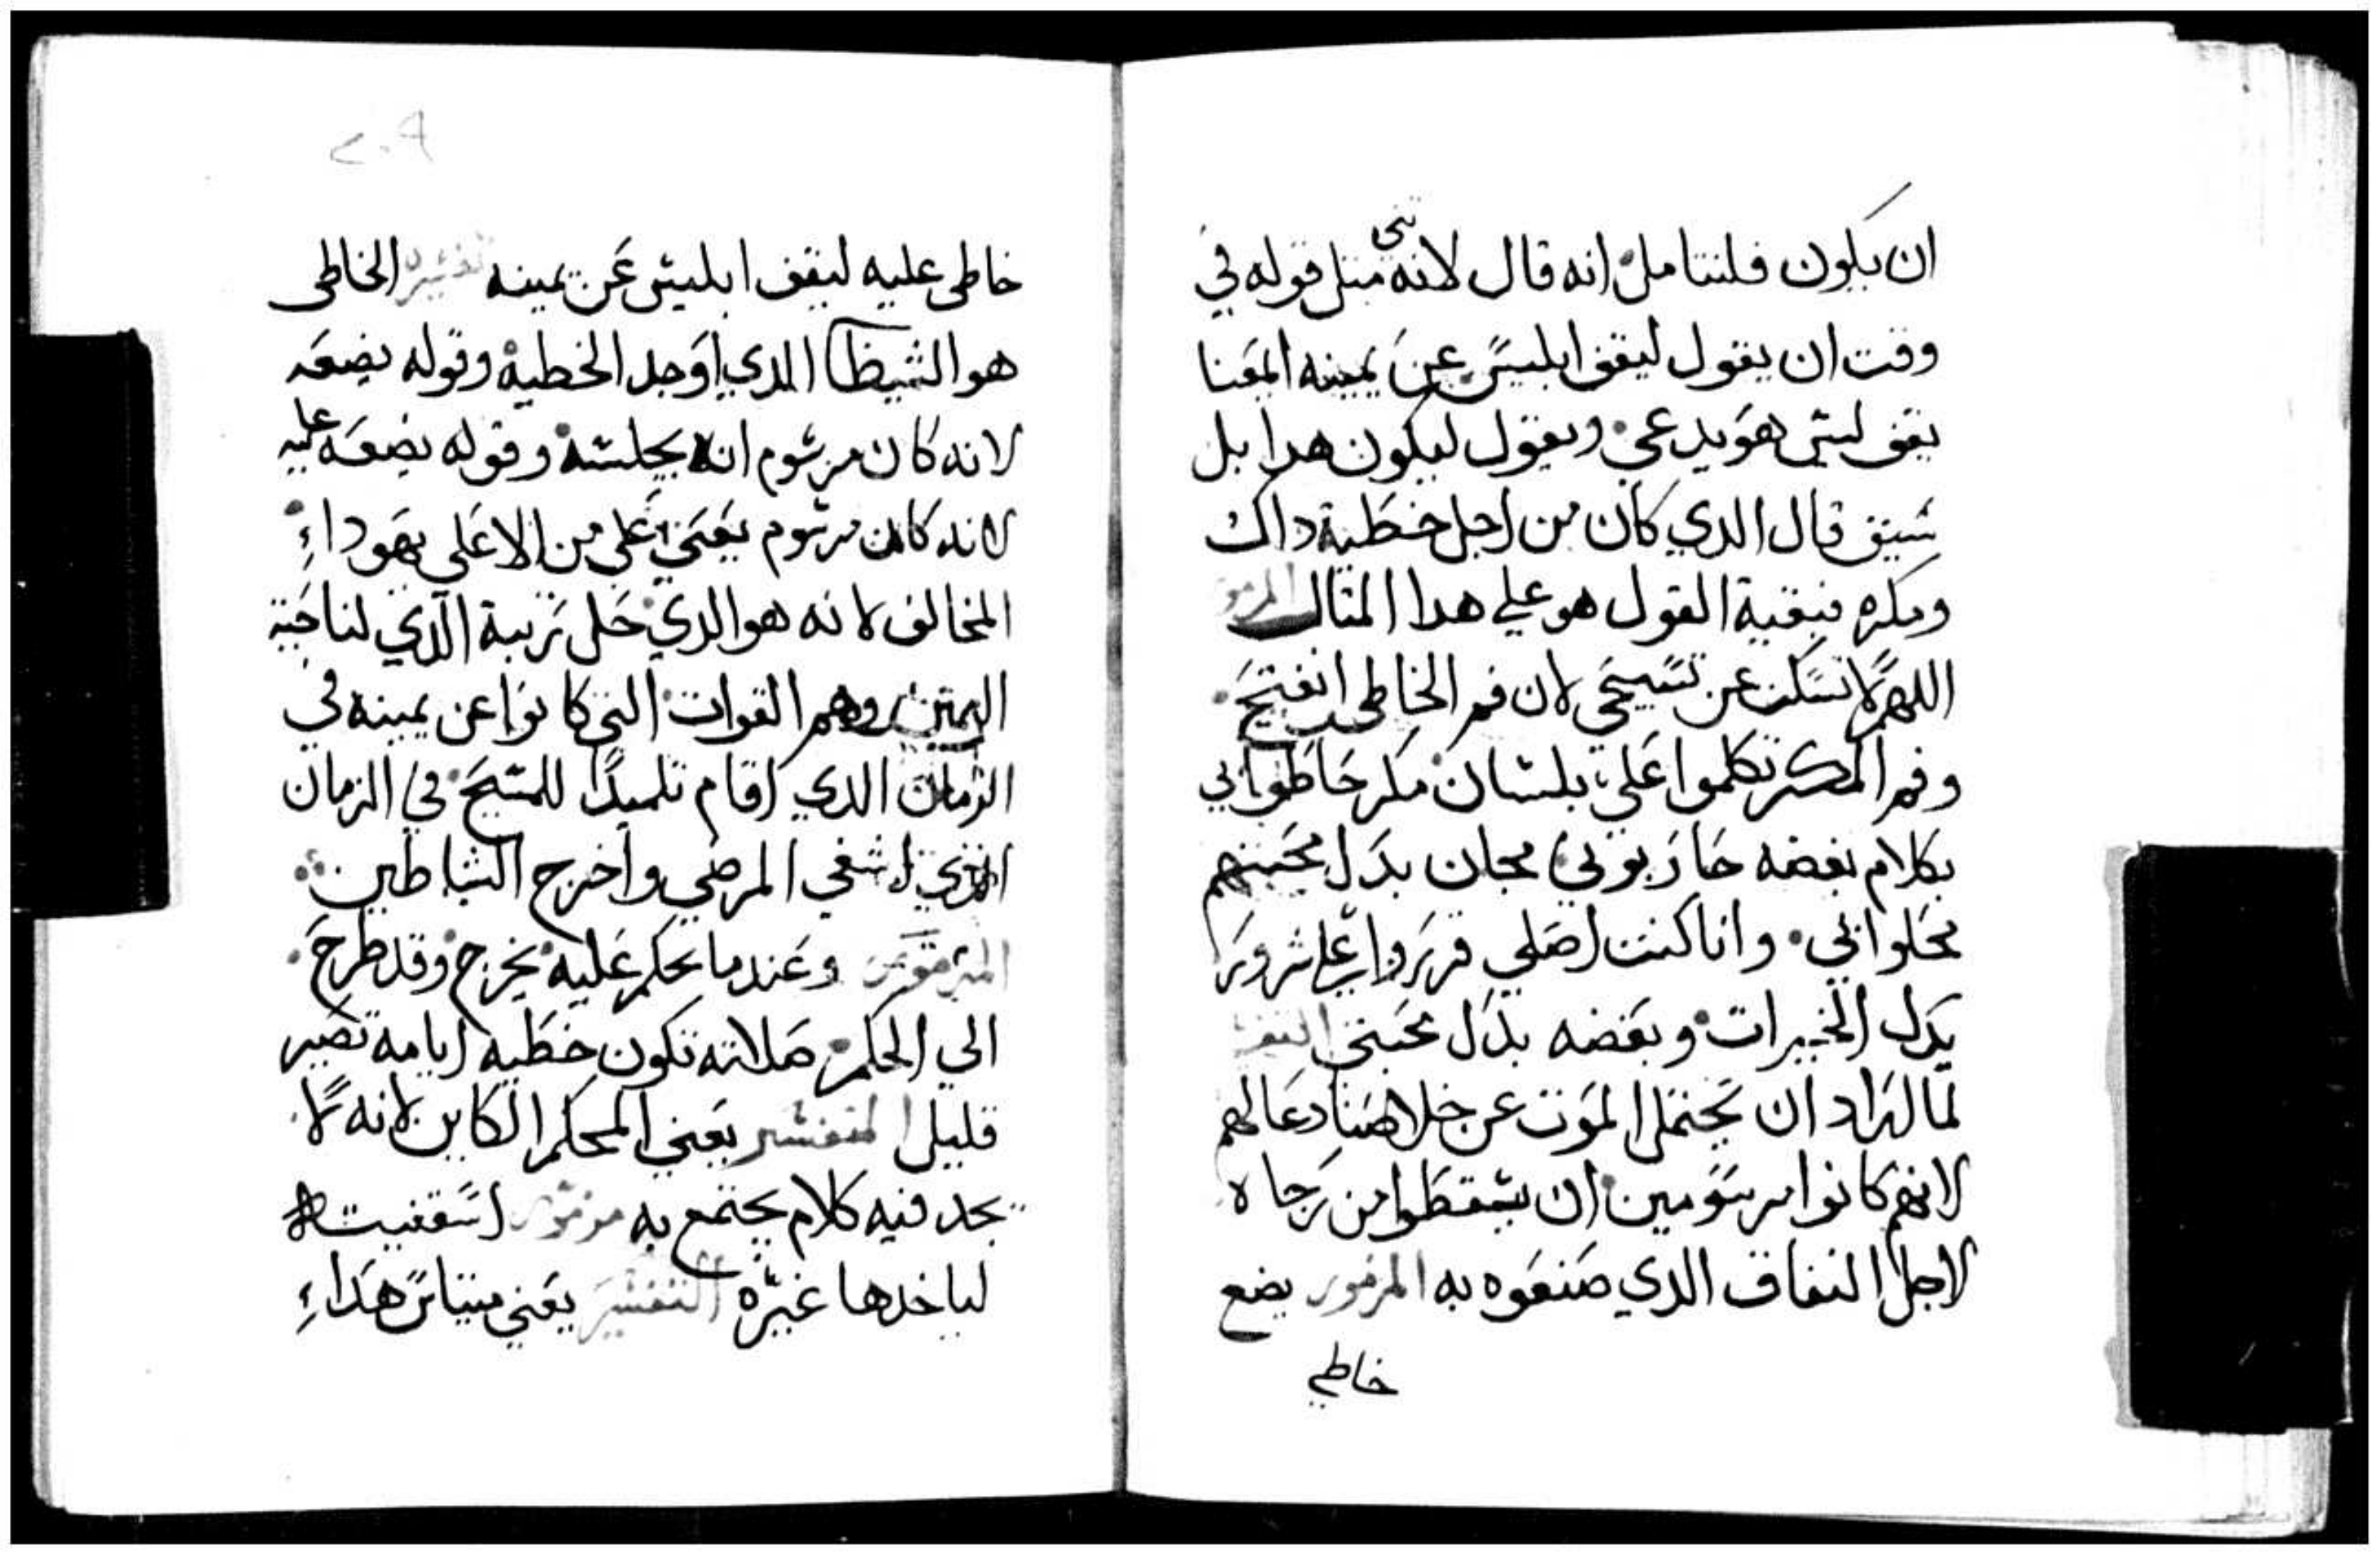 ان يكون فلنتامل انه قال لانه متل قوله في
تني
وقت ان يقول ليقف ابليس عن يمينه المعنا
يقف ليس هو يدعي ويقول ليكون هدا بل
سبق قال الدي كان من اجل خطية داك
ومكره فبقية القول هو على هدا المتال المزمور
اللهم لا تسكت عن تسبيحي لان فم الخاطى انفتح
وفم المكر تكلموا علي بلسان مكر حاطوا بي
بكلام بغضه حاربوني مجان بدل محبتهم
محلوا بي وانا كنت اصلي قرروا علي شرور
بدل الخيرات وبغضه بدل محبتي التفسير
لما اراد ان يحتمل الموت عن خلاصنا دعا لهم
لانهم كانوا مرسومين ان يسقطوا من رجاه
لاجل النفاق الدي صنعوه به المزمور يضع
خاطي
٢٠٩
خاطى عليه ليقف ابليس عن يمينه تفسير الخاطى
هو الشيطان الدي اوجد الخطية وقوله يضعه
لانه كان مرسوم انه يجلسه وقوله يضعه عليه
لانه كان مرسوم يعني علي من الاعلى يهوداء
المخالف لانه هو الدي حل تربية الدي لناحية
اليمين وهم القوات التي كانوا عن يمينه في
الزمان الدي اقام تلميدا للمسيح في الزمان
الدي اشفي المرضي واخرج الشياطين
المزمور وعندما يحكم عليه يخرج وقد طرح
الي الحكم صلاته تكون خطيه ايامه تصير
قليل المفسر يعني المحكم الكاين لانه لا
يجد فيه كلام يجتمع به مزمور اسقفيته
لياخدها غيره التفسير يعني ميتاس هداء